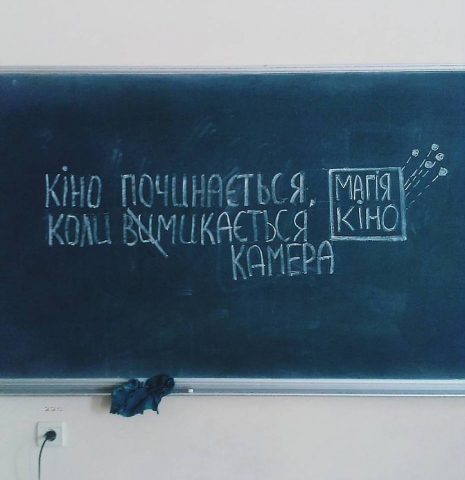 КІНО ПОЧИНАЄТЬСЯ,
КОЛИ ВИМИКАЄТЬСЯ
КАМЕРА
МАГІЯ
КІНО
220